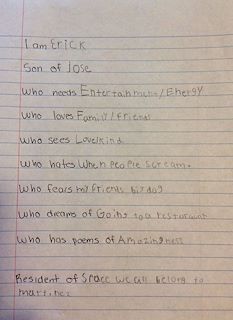 I am Erick
Son of Jose
who needs Entertainment/Energy
who loves Family/Friends
who sees Love/kind
who hates When people scream.
who fears my friends big dog
who dreams of Going to a restaurant
who has poems of Amazingness
Resident of Space we all belong to
martinez